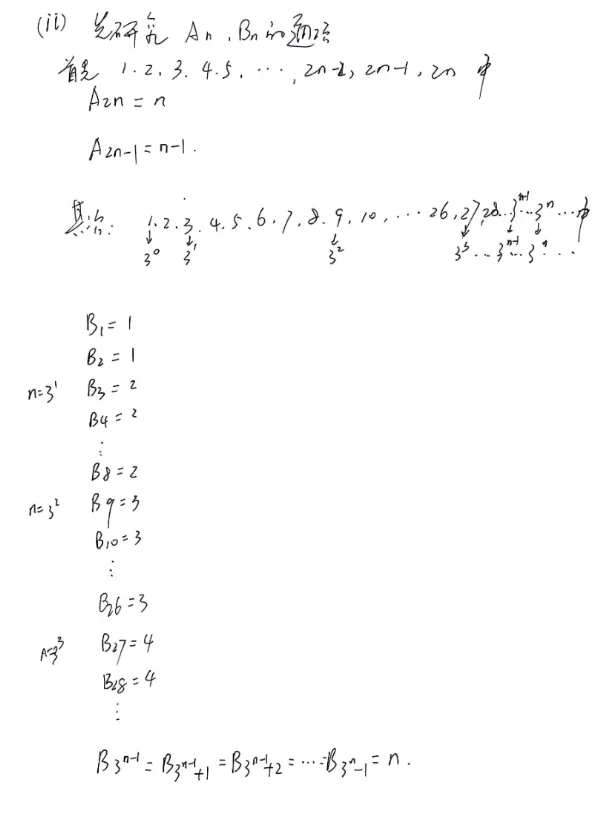 (ii) 先研究 An、Bn的通项
首先 1. 2. 3. 4. 5. …, 2n-2, 2n-1, 2n 中
A2n = n
A2n-1 = n-1.
其次: 1. 2. 3. 4. 5. 6. 7. 8. 9. 10. … 26, 27, 28…3^{n-1}…3^n…中
↓ ↓ ↓ ↓ ↓ ↓
3^0 3^1 3^2 3^3…3^{n-1}…3^n…
B1 = 1
B2 = 1
n=3^1 B3 = 2
B4 = 2
⋮
B8 = 2
n=3^2 B9 = 3
B10 = 3
⋮
B26 = 3
n=3^3 B27 = 4
B28 = 4
⋮
B_{3^{n-1}} = B_{3^{n-1}+1} = B_{3^{n-1}+2} = … = B_{3^n-1} = n.